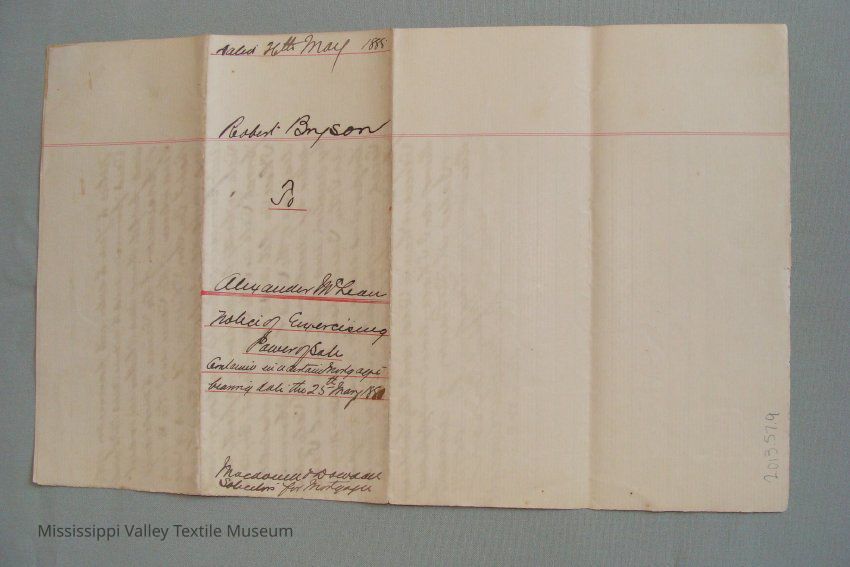 Dated 26th May 1885
Robert Bryson
To
Alexander McLean
Notice of Exercising
Power of Sale
Contained in a certain Mortgage
bearing date the 25th May
Solicitors for Mortgagee
2013.57.9
Mississippi Valley Textile Museum